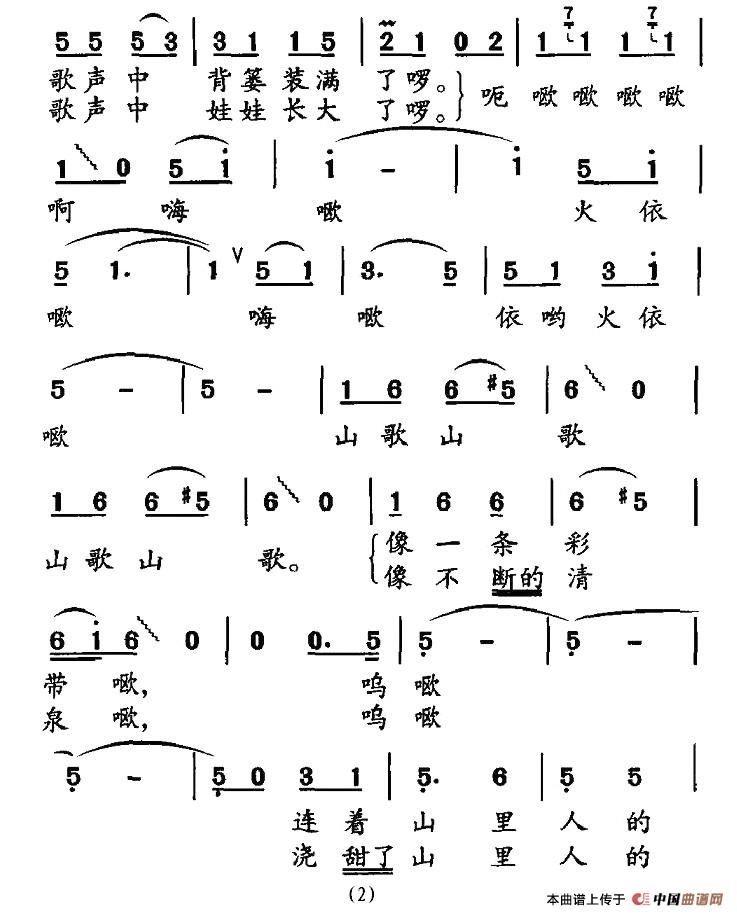 5 5 5 3 | 3 1 1 5 | 2 1 0 2 | 7 1 1 7 1 1 |
歌声中 背篓装满 了啰。 呃 噷噷噷噷
歌声中 娃娃长大 了啰。
1 0 5 i | i - | i 5 i |
啊 嗨 噷 火 依
5 1. | 1 ∨ 5 1 | 3. 5 | 5 1 3 i |
噷 嗨 噷 依哟火依
5 - | 5 - | 1 6 6 #5 | 6 0 |
噷 山歌山 歌
1 6 6 #5 | 6 0 | 1 6 6 | 6 #5 |
山歌山 歌。 像一条 彩
像不断的 清
6 i 6 0 | 0 0. 5 | 5 - | 5 - |
带 噷, 呜 噷
泉 噷, 呜 噷
5 - | 5 0 3 1 | 5. 6 | 5 5 |
连着 山里 人的
浇甜了 山里 人的
(2)
本曲谱上传于 中国曲谱网